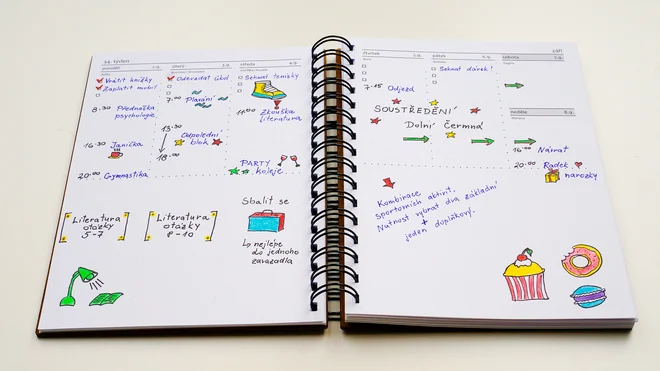 36. týden
pondělí 2.9.
úterý 3.9.
středa 4.9.
Vrátit knížky
Zaplatit mobil
8.30 Přednáška
psychologie
16.30 Janička
20.00 Gymnastika
Odevzdat úkol
7.00
Plavání
13.30
Odpolední
blok
18.00
Sehnat tenisky
11.00 Zkouška
literatura
PARTY
koleje
Literatura
otázky
5-7
Literatura
otázky
8-10
Sbalit se
nejlépe
do jednoho
zavazadla
září
čtvrtek 5.9.
pátek 6.9.
sobota 7.9.
neděle 8.9.
7.15 Odjezd
Sehnat dárek!
SOUSTŘEDĚNÍ
Dolní Čermná
16.00 Návrat
20.00 Radek
narozky
Kombinace
sportovních aktivit.
Nutnost vybrat dva základní
+
jeden doplňkový.